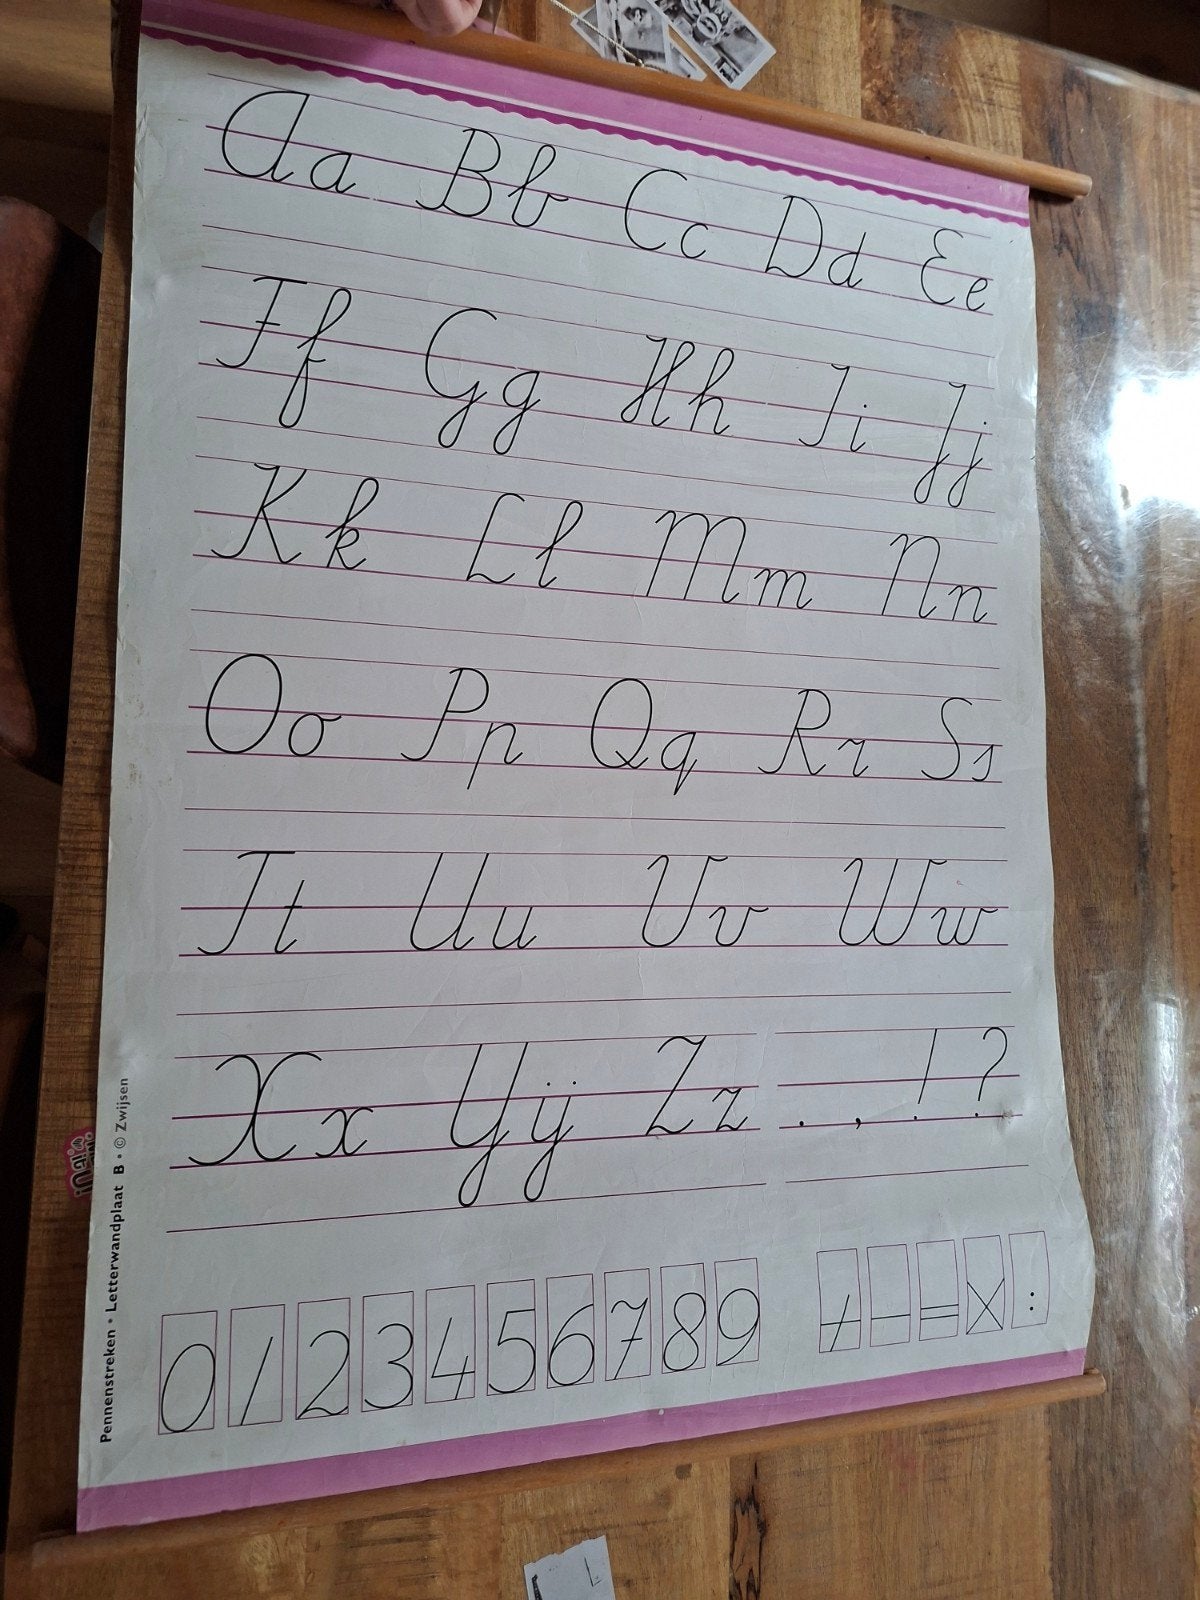 Aa Bb Cc Dd Ee
Ff Gg Hh Ii Jj
Kk Ll Mm Nn
Oo Pp Qq Rr Ss
Tt Uu Vv Ww
Xx IJij Zz . , ! ?
0 1 2 3 4 5 6 7 8 9 + - = × :
Pennenstreken • Letterwandplaat B • © Zwijsen